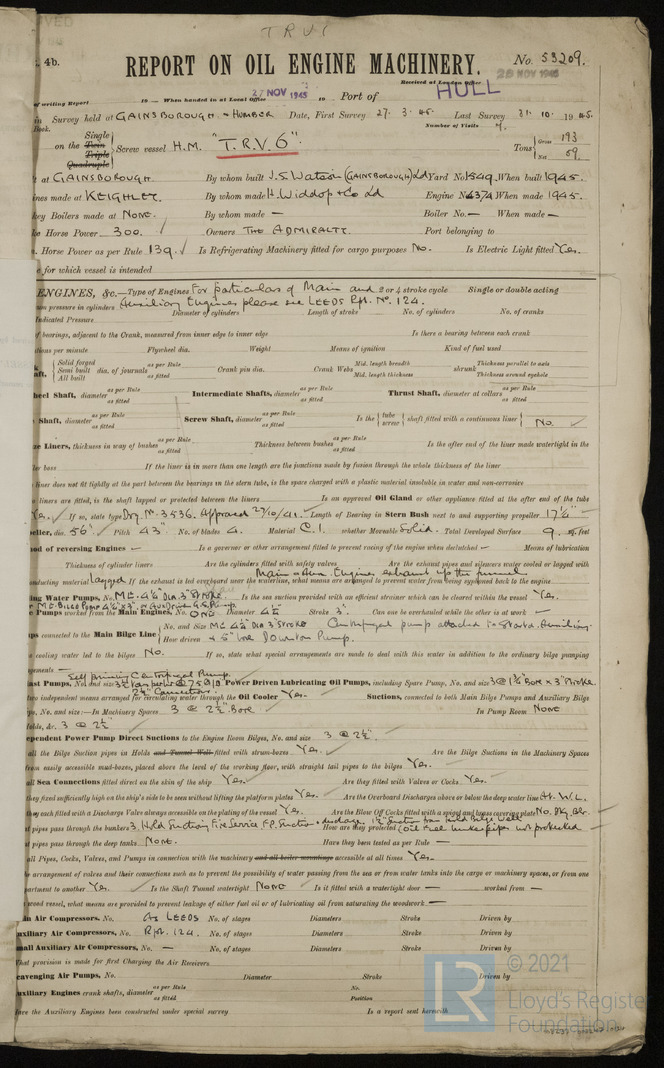 TRV1
4b.
REPORT ON OIL ENGINE MACHINERY.
No. 53209.
Received at London Office
28 NOV 1945
of writing Report 19 — When handed in at Local Office 27 NOV 1945 19 Port of HULL
in Survey held at GAINSBOROUGH & HUMBER Date, First Survey 27. 3. 45. Last Survey 31. 10. 1945.
Book. Number of Visits
on the Single Twin Triple Quadruple Screw vessel H.M. "T.R.V. 6". Tons Gross 193 Net 59.
t at GAINSBOROUGH. By whom built J.S. Watson (GAINSBOROUGH) Ld Yard No. 1549. When built 1945.
ines made at KEIGHLEY. By whom made H. Widdop & Co Ld Engine No. 4374 When made 1945.
key Boilers made at NONE. By whom made — Boiler No. — When made —
ke Horse Power 300. Owners THE ADMIRALTY Port belonging to
. Horse Power as per Rule 139. Is Refrigerating Machinery fitted for cargo purposes No. Is Electric Light fitted Yes.
e for which vessel is intended
ENGINES, &c.—Type of Engines For particulars of Main and 2 or 4 stroke cycle Single or double acting
um pressure in cylinders Auxiliary Engines please see LEEDS Rpt. No. 124.
Diameter of cylinders Length of stroke No. of cylinders No. of cranks
Indicated Pressure
of bearings, adjacent to the Crank, measured from inner edge to inner edge Is there a bearing between each crank
utions per minute Flywheel dia. Weight Means of ignition Kind of fuel used
aft, Solid forged Semi built All built dia. of journals as per Rule as fitted Crank pin dia. Crank Webs Mid. length breadth Mid. length thickness shrunk Thickness parallel to axis Thickness around eyehole
heel Shaft, diameter as per Rule as fitted Intermediate Shafts, diameter as per Rule as fitted Thrust Shaft, diameter at collars as per Rule as fitted
Shaft, diameter as per Rule as fitted Screw Shaft, diameter as per Rule as fitted Is the tube screw shaft fitted with a continuous liner No.
ze Liners, thickness in way of bushes as per Rule as fitted Thickness between bushes as per Rule as fitted Is the after end of the liner made watertight in the
ller boss If the liner is in more than one length are the junctions made by fusion through the whole thickness of the liner
liner does not fit tightly at the part between the bearings in the stern tube, is the space charged with a plastic material insoluble in water and non-corrosive
o liners are fitted, is the shaft lapped or protected between the liners Is an approved Oil Gland or other appliance fitted at the after end of the tube
Yes. If so, state type Drg. No. 3536. Approved 27/10/41. Length of Bearing in Stern Bush next to and supporting propeller 17¼"
peller, dia. 56" Pitch 43" No. of blades 4. Material C.I. whether Moveable Solid. Total Developed Surface 9. sq. feet
hod of reversing Engines — Is a governor or other arrangement fitted to prevent racing of the engine when declutched — Means of lubrication
Thickness of cylinder liners Are the cylinders fitted with safety valves Are the exhaust pipes and silencers water cooled or lagged with
Main & Aux Engines exhaust up the funnel
onducting material lagged If the exhaust is led overboard near the waterline, what means are arranged to prevent water being syphoned back to the engine
ing Water Pumps, No. ME. 4¼" DIA. 3" STROKE. Is the sea suction provided with an efficient strainer which can be cleared within the vessel Yes.
e Pumps worked from the Main Engines, No. ONE Diameter 4¼" Stroke 3" Can one be overhauled while the other is at work —
ps connected to the Main Bilge Line No. and Size ME 4¼" DIA 3" STROKE Centrifugal pump attached to Starbd. Auxiliary.
How driven & 5" bore Downton Pump.
e cooling water led to the bilges No. If so, what special arrangements are made to deal with this water in addition to the ordinary bilge pumping
gements —
Self priming Centrifugal Pump
ast Pumps, No. and size Power Driven Lubricating Oil Pumps, including Spare Pump, No. and size 3 @ 1¼" Bore x 3" Stroke
two independent means arranged for circulating water through the Oil Cooler Yes. Suctions, connected to both Main Bilge Pumps and Auxiliary Bilge
ps, No. and size:—In Machinery Spaces 3 @ 2½" Bore In Pump Room NONE
Holds, &c. 3 @ 2½"
ependent Power Pump Direct Suctions to the Engine Room Bilges, No. and size 3 @ 2½".
all the Bilge Suction pipes in Holds and Tunnel Well fitted with strum-boxes Yes. Are the Bilge Suctions in the Machinery Spaces
from easily accessible mud-boxes, placed above the level of the working floor, with straight tail pipes to the bilges Yes.
all Sea Connections fitted direct on the skin of the ship Yes. Are they fitted with Valves or Cocks Yes.
they fixed sufficiently high on the ship's side to be seen without lifting the platform plates Yes. Are the Overboard Discharges above or below the deep water line At. W.L.
they each fitted with a Discharge Valve always accessible on the plating of the vessel Yes. Are the Blow Off Cocks fitted with a spigot and brass covering plate No.
at pipes pass through the bunkers 3, Hold Suction, Fire Service How are they protected (Oil Fuel bunker pipes not protected
at pipes pass through the deep tanks NONE. Have they been tested as per Rule —
all Pipes, Cocks, Valves, and Pumps in connection with the machinery and all boiler mountings accessible at all times Yes
e arrangement of valves and their connections such as to prevent the possibility of water passing from the sea or from water tanks into the cargo or machinery spaces, or from one
partment to another Yes. Is the Shaft Tunnel watertight NONE Is it fitted with a watertight door — worked from —
a wood vessel, what means are provided to prevent leakage of either fuel oil or of lubricating oil from saturating the woodwork —
in Air Compressors, No. As LEEDS No. of stages Diameters Stroke Driven by
uxiliary Air Compressors, No. Rpt. 124. No. of stages Diameters Stroke Driven by
mall Auxiliary Air Compressors, No. — No. of stages Diameters Stroke Driven by
That provision is made for first Charging the Air Receivers
cavenging Air Pumps, No. Diameter Stroke Driven by
uxiliary Engines crank shafts, diameter as per Rule as fitted No. Position
Have the Auxiliary Engines been constructed under special survey Is a report sent herewith
© 2021
LR
Lloyd's Register
Foundation